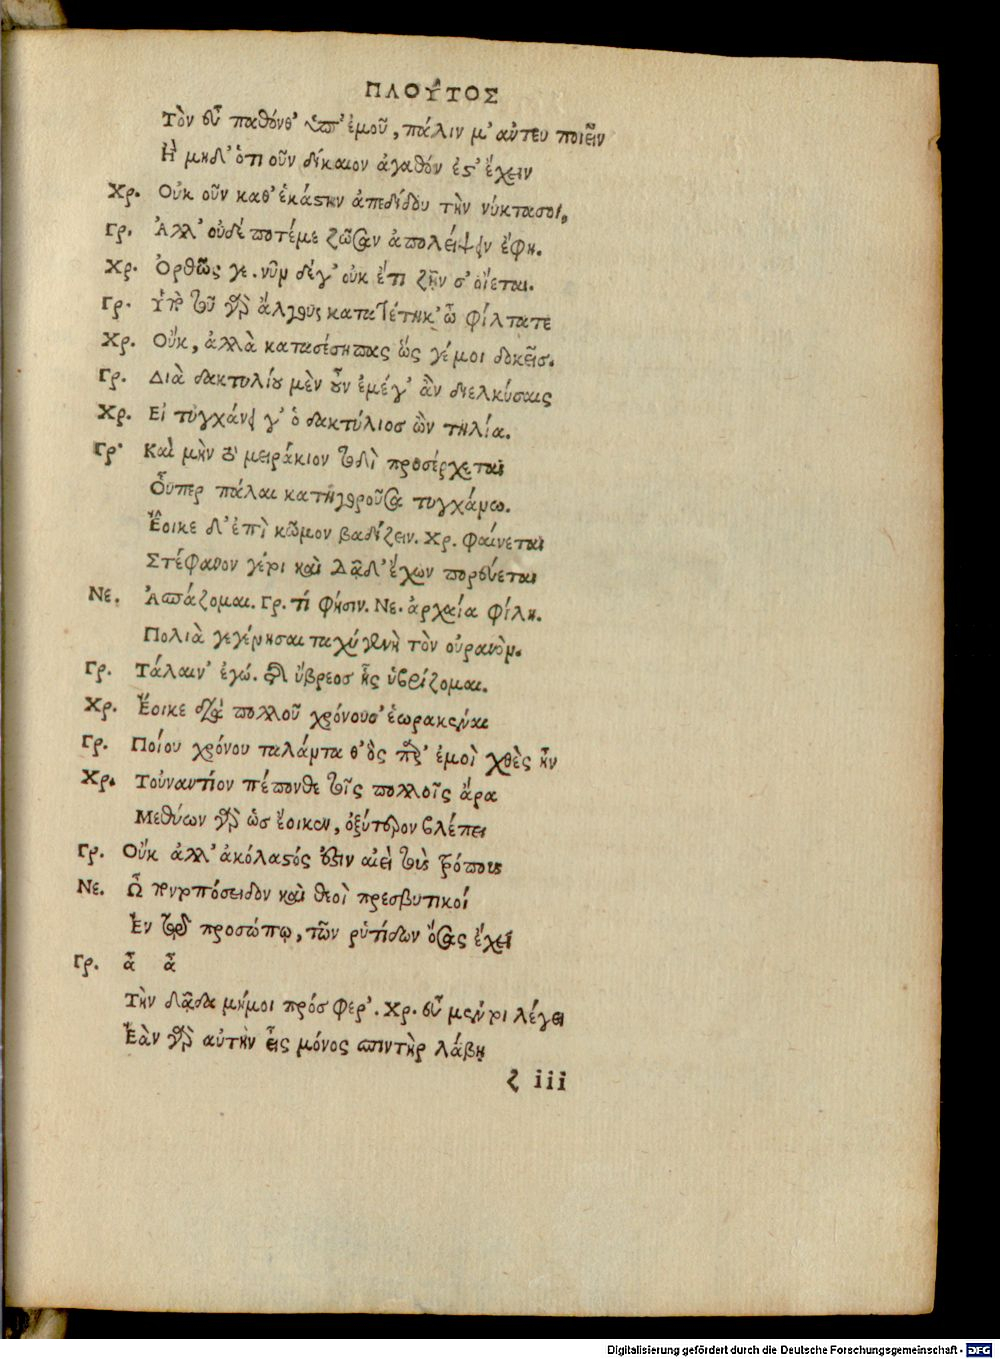 ΠΛΟΥ͂ΤΟΣ
Τὸν εὖ παθόνθ' ὑπ' ἐμοῦ, πάλιν μ' αὖτευ ποιεῖν
Ἢ μηδ' ὁτι οῦν δίκαιον ἀγαθόν ἐς' ἔχειν
Χρ. Οὐκ οῦν καθ' ἑκάστην ἀπεδίδου τὴν νύκτασοι,
Γρ. Ἀλλ' οὐδέ ποτέμε ζῶσαν ἀπολείψειν ἔφη.
Χρ. Ὀρθῶς γε. νῦν δέγ' οὐκ ἔτι ζῆν σ' οἴεται.
Γρ. Ὑπὸ τοῦ γὰρ ἄλγους κατατέτηκ' ὦ φίλτατε
Χρ. Οὔκ, ἀλλὰ κατασέσηπας ὥς γέμοι δοκεῖσ.
Γρ. Διὰ δακτυλίου μὲν οὖν ἐμέγ' ἂν διελκύσαις
Χρ. Εἰ τυγχάνει γ' ὁ δακτύλιοσ ὢν τηλία.
Γρ. Καὶ μὴν τὸ μειράκιον τοδὶ προσέρχεται
Οὗπερ πάλαι κατηγοροῦσα τυγχάνω.
Ἔοικε δ' ἐπὶ κῶμον βαδίζειν. Χρ. φαίνεται
Στέφανον γέτοι καὶ δᾷδ' ἔχων πορεύεται
Νε. Ἀσπάζομαι. Γρ. τί φησιν. Νε. ἀρχαία φίλη.
Πολιὰ γεγένησαι ταχύγενὴ τὸν οὐρανὸν.
Γρ. Τάλαιν' ἐγώ. τῆς ὕβρεοσ ἧς ὑβρίζομαι.
Χρ. Ἔοικε διὰ πολλοῦ χρόνουσ' ἑωρακέναι
Γρ. Ποίου χρόνου ταλάντα θ' ὃς παρ' ἐμοὶ χθὲς ἦν
Χρ. Τοὐναντίον πέπονθε τοῖς πολλοῖς ἄρα
Μεθύων γὰρ ὡσ ἔοικεν, ὀξύτερον βλέπει
Γρ. Οὔκ ἀλλ' ἀκόλαστός ἐστιν αἰεὶ τοὺς τρόπους
Νε. Ὦ ποντοπόσειδον καὶ θεοὶ πρεσβυτικοί
Ἐν τῷ προσώπῳ, τῶν ῥυτίδων ὅσας ἔχει
Γρ. ἆ ἆ
Τὴν δᾷδα μήμοι πρόσφερ'. Χρ. εὖ μέντοι λέγει
Ἐὰν γὰρ αὐτὴν εἷς μόνος σπιντὴρ λάβῃ
ζ iii
Digitalisierung gefördert durch die Deutsche Forschungsgemeinschaft - DFG